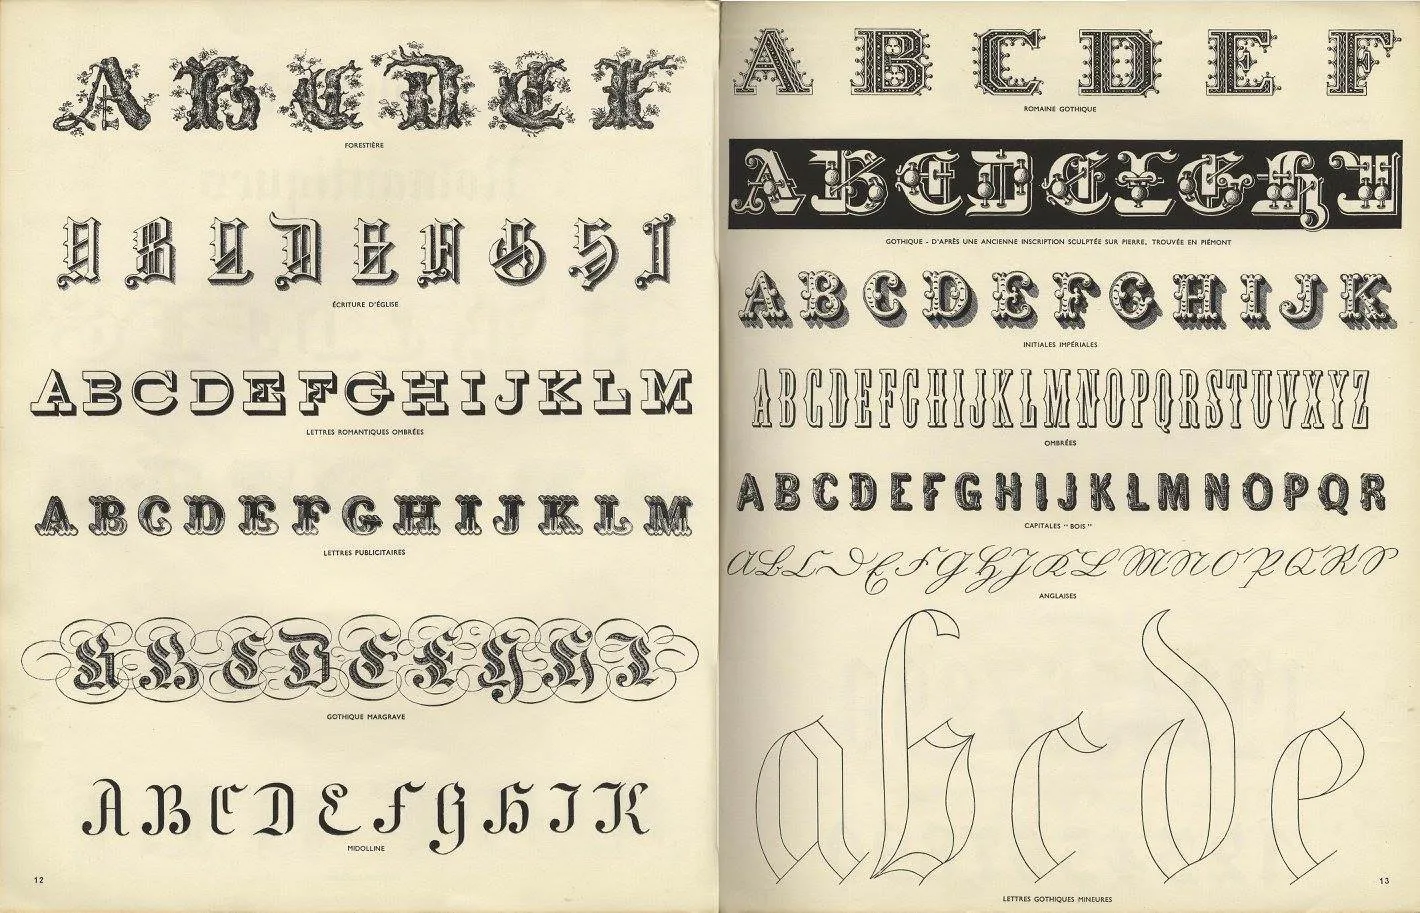 A B C D E F
FORESTIÈRE
A B C D E F G H I
ÉCRITURE D'ÉGLISE
A B C D E F G H I J K L M
LETTRES ROMANTIQUES OMBRÉES
A B C D E F G H I J K L M
LETTRES PUBLICITAIRES
A B C D E F G H I
GOTHIQUE MARGRAVE
A B C D E F G H I K
MIDOLLINE
12
A B C D E F
ROMAINE GOTHIQUE
A B C D E F G H I
GOTHIQUE - D'APRÈS UNE ANCIENNE INSCRIPTION SCULPTÉE SUR PIERRE, TROUVÉE EN PIÉMONT
A B C D E F G H I J K
INITIALES IMPÉRIALES
A B C D E F G H I J K L M N O P Q R S T U V X Y Z
OMBRÉES
A B C D E F G H I J K L M N O P Q R
CAPITALES "BOIS"
A B C D E F G H J K L M N O P Q R S
ANGLAISES
a b c d e
LETTRES GOTHIQUES MINEURES
13